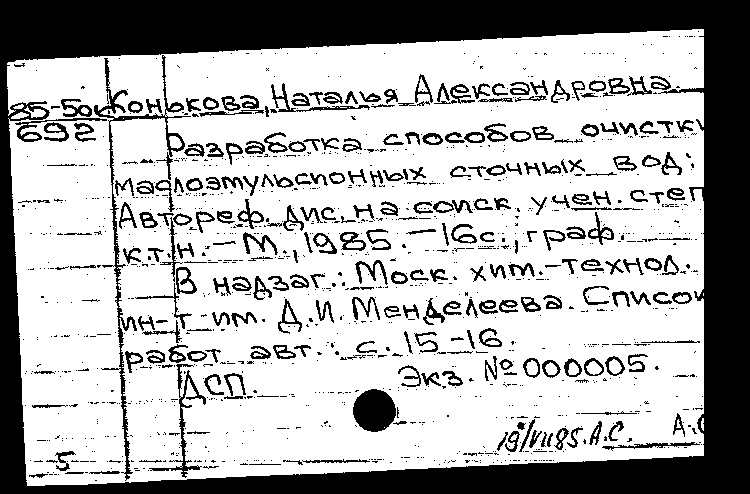 85-5ок Конькова, Наталья Александровна.
692
Разработка способов очистки
маслоэмульсионных сточных вод:
Автореф. дис. на соиск. учен. степ
к.т.н. — М., 1985. — 16с., граф.
В надзаг.: Моск. хим.-технол.
ин-т им. Д.И. Менделеева. Список
работ авт.: с. 15-16.
ДСП. Экз. № 000005.
19/VII85. А.С.
5